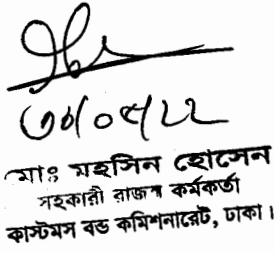 ৩০/০৫/২২
মোঃ মহসিন হোসেন
সহকারী রাজস্ব কর্মকর্তা
কাস্টমস বন্ড কমিশনারেট, ঢাকা।